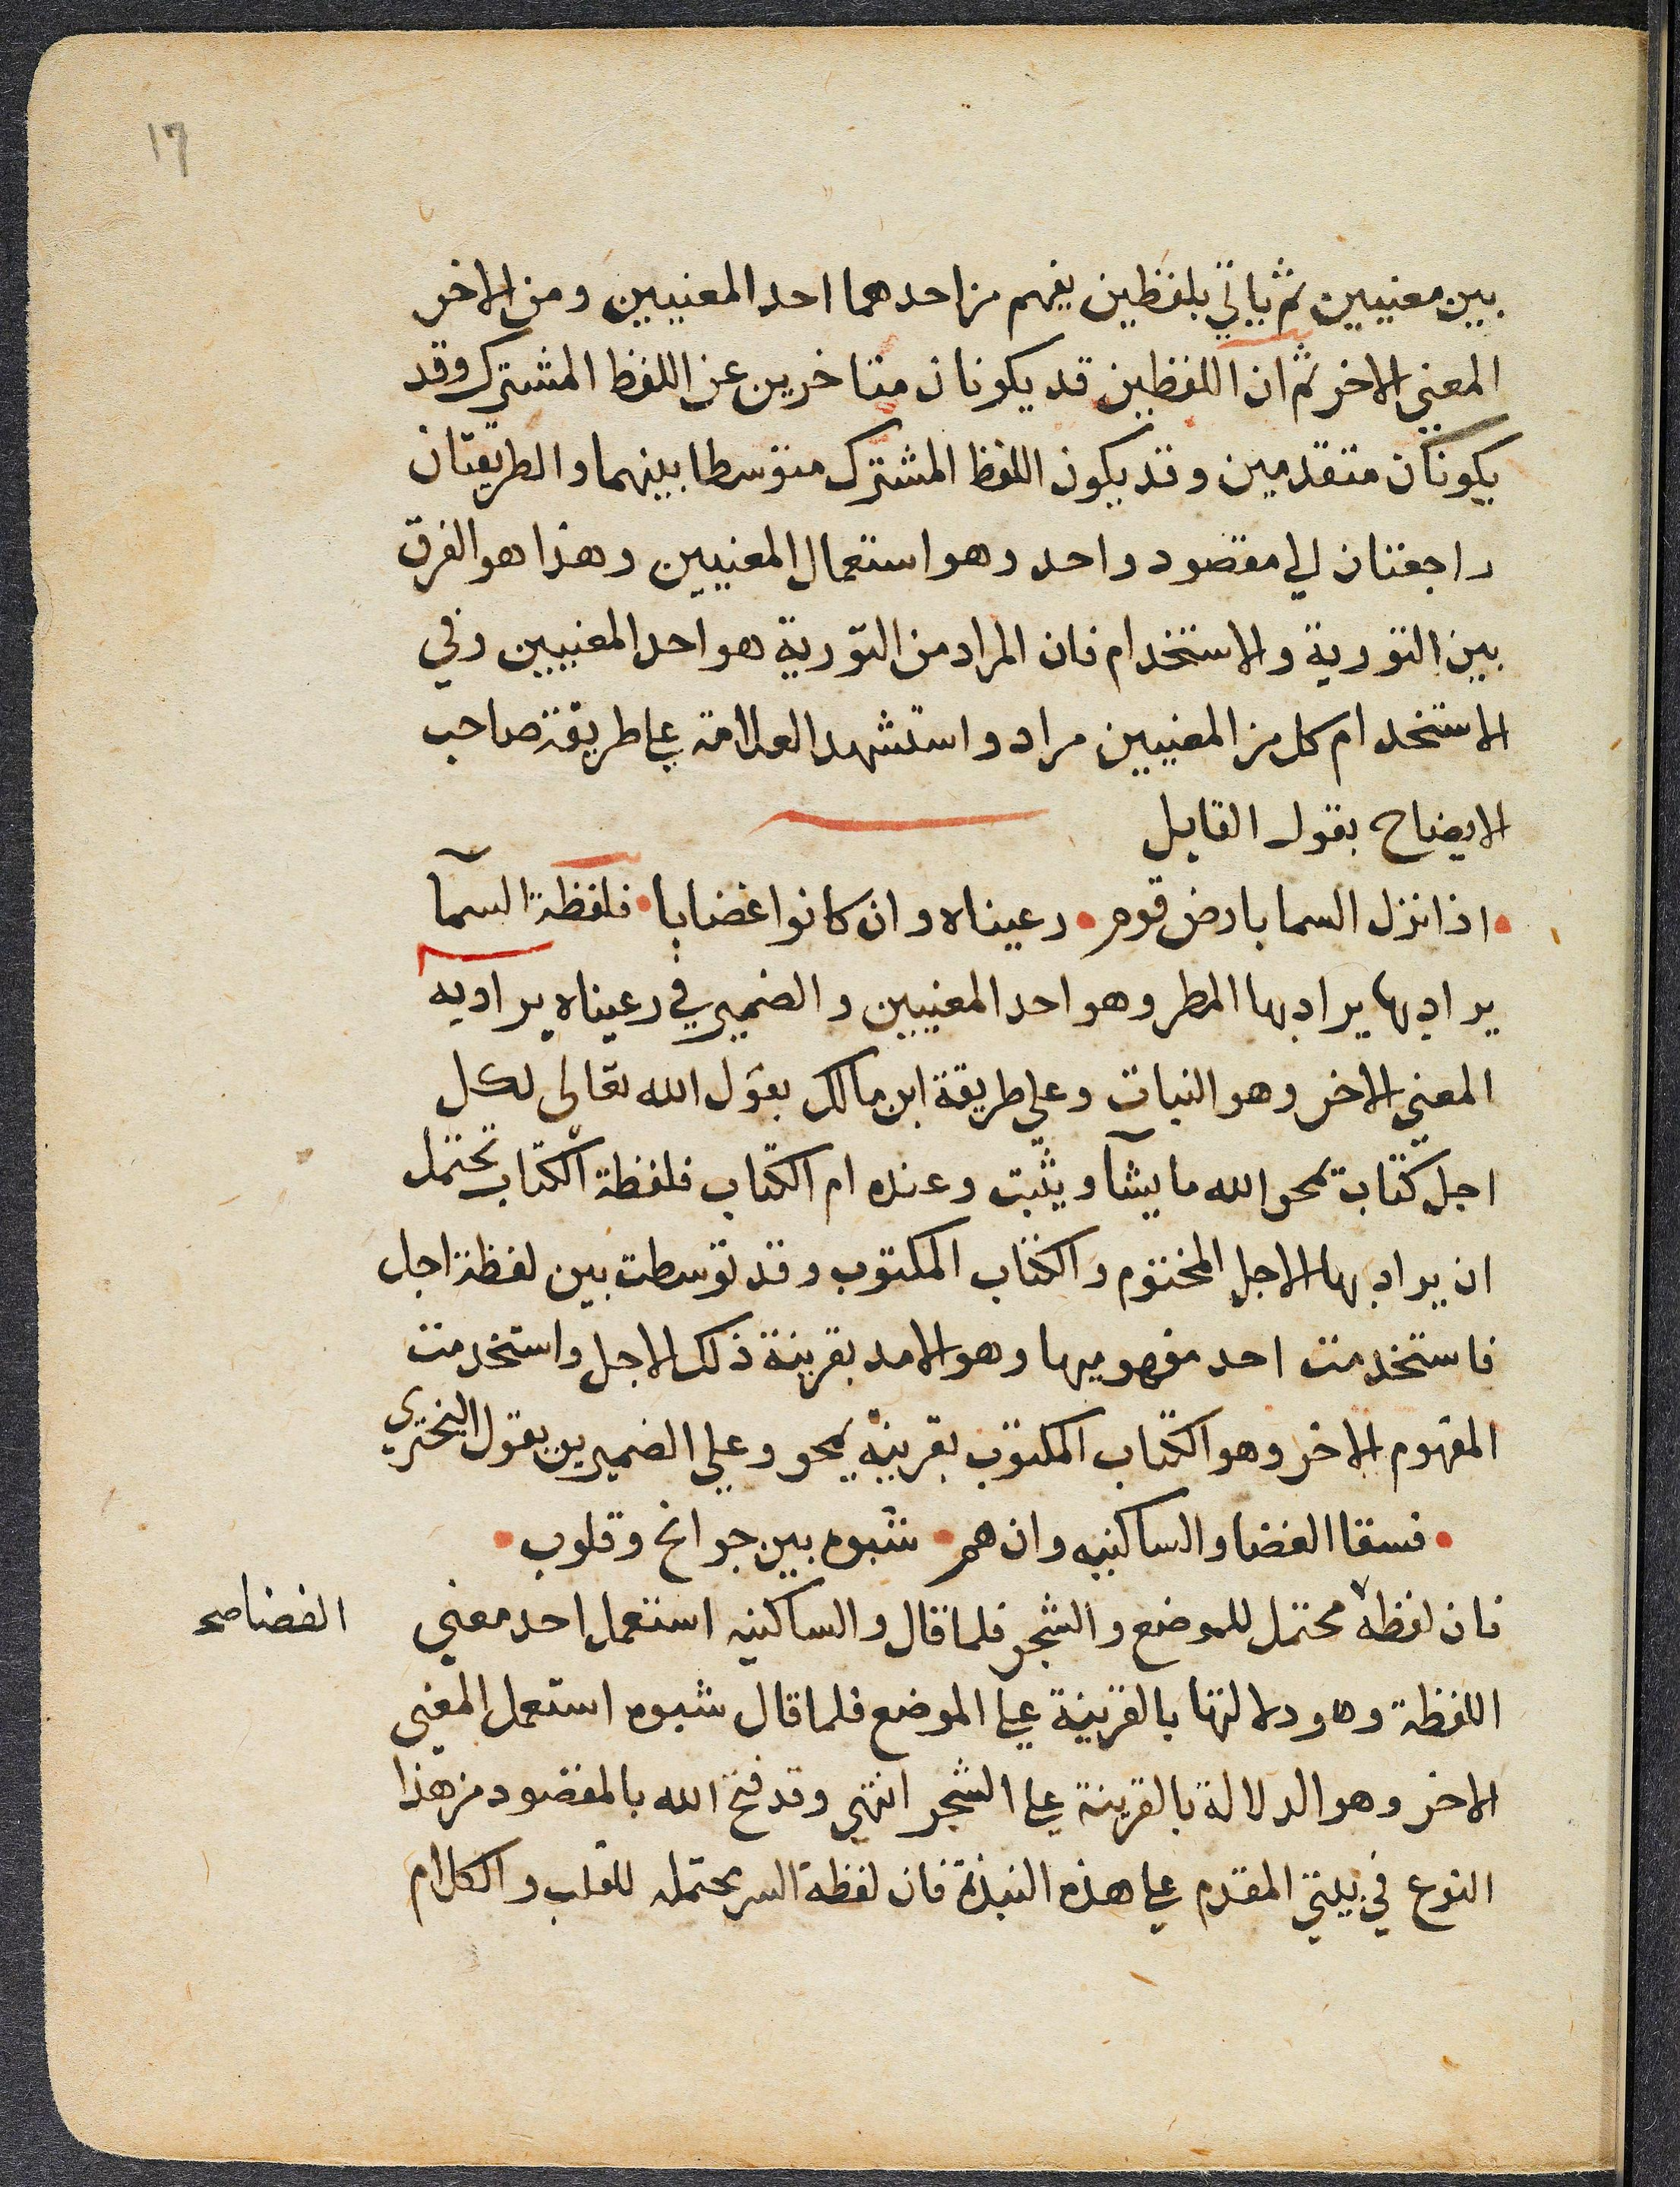 17
بين معنيين ثم ياتي بلفظين يفهم من احدهما احد المعنيين ومن الاخر
المعني الاخر ثم ان اللفظين قد يكونان متاخرين عن اللفظ المشترك وقد
يكونان متقدمين وقد يكون اللفظ المشترك متوسطا بينهما والطريقتان
راجعتان الي مقصود واحد وهو استعمال المعنيين وهذا هو الفرق
بين التورية والاستخدام فان المراد من التورية هو احد المعنيين وفي
الاستخدام كل من المعنيين مراد واستشهد العلامة علي طريقة صاحب
الايضاح بقول القايل
اذا نزل السما بارض قوم • رعيناه وان كانوا غضابا • فلفظة السمآ
يراد بها يراد بها المطر وهو احد المعنيين والضمير في رعيناه يراد به
المعني الاخر وهو النبات وعلي طريقة ابن مالك بقول الله تعالى لكل
اجل كتاب يمحو الله ما يشآ ويثبت وعنده ام الكتاب فلفظة الكتاب تحتمل
ان يراد بها الاجل المختوم والكتاب المكتوب وقد توسطت بين لفظة اجل
فاستخدمت احد مفهوميها وهو الامد بقرينة ذكر الاجل واستخدمت
المفهوم الاخر وهو الكتاب المكتوب بقرينة يمحو وعلي الضميرين بقول البختري
• فسقا الغضا والساكنيه وان هم • شبوه بين جوانح وقلوب •
فان لفظة محتمل للموضع والشجر فلما قال والساكنيه استعمل احد معني
الغضا صح
اللفظة وهو دلالتها بالقرينة علي الموضع فلما قال شبوه استعمل المعني
الاخر وهو الدلالة بالقرينة علي الشجر انتهي وقد فتح الله بالمقصود من هذا
النوع في بيتي المقدم علي هذه النبذة فان لفظة السر محتمله للقلب والكلام